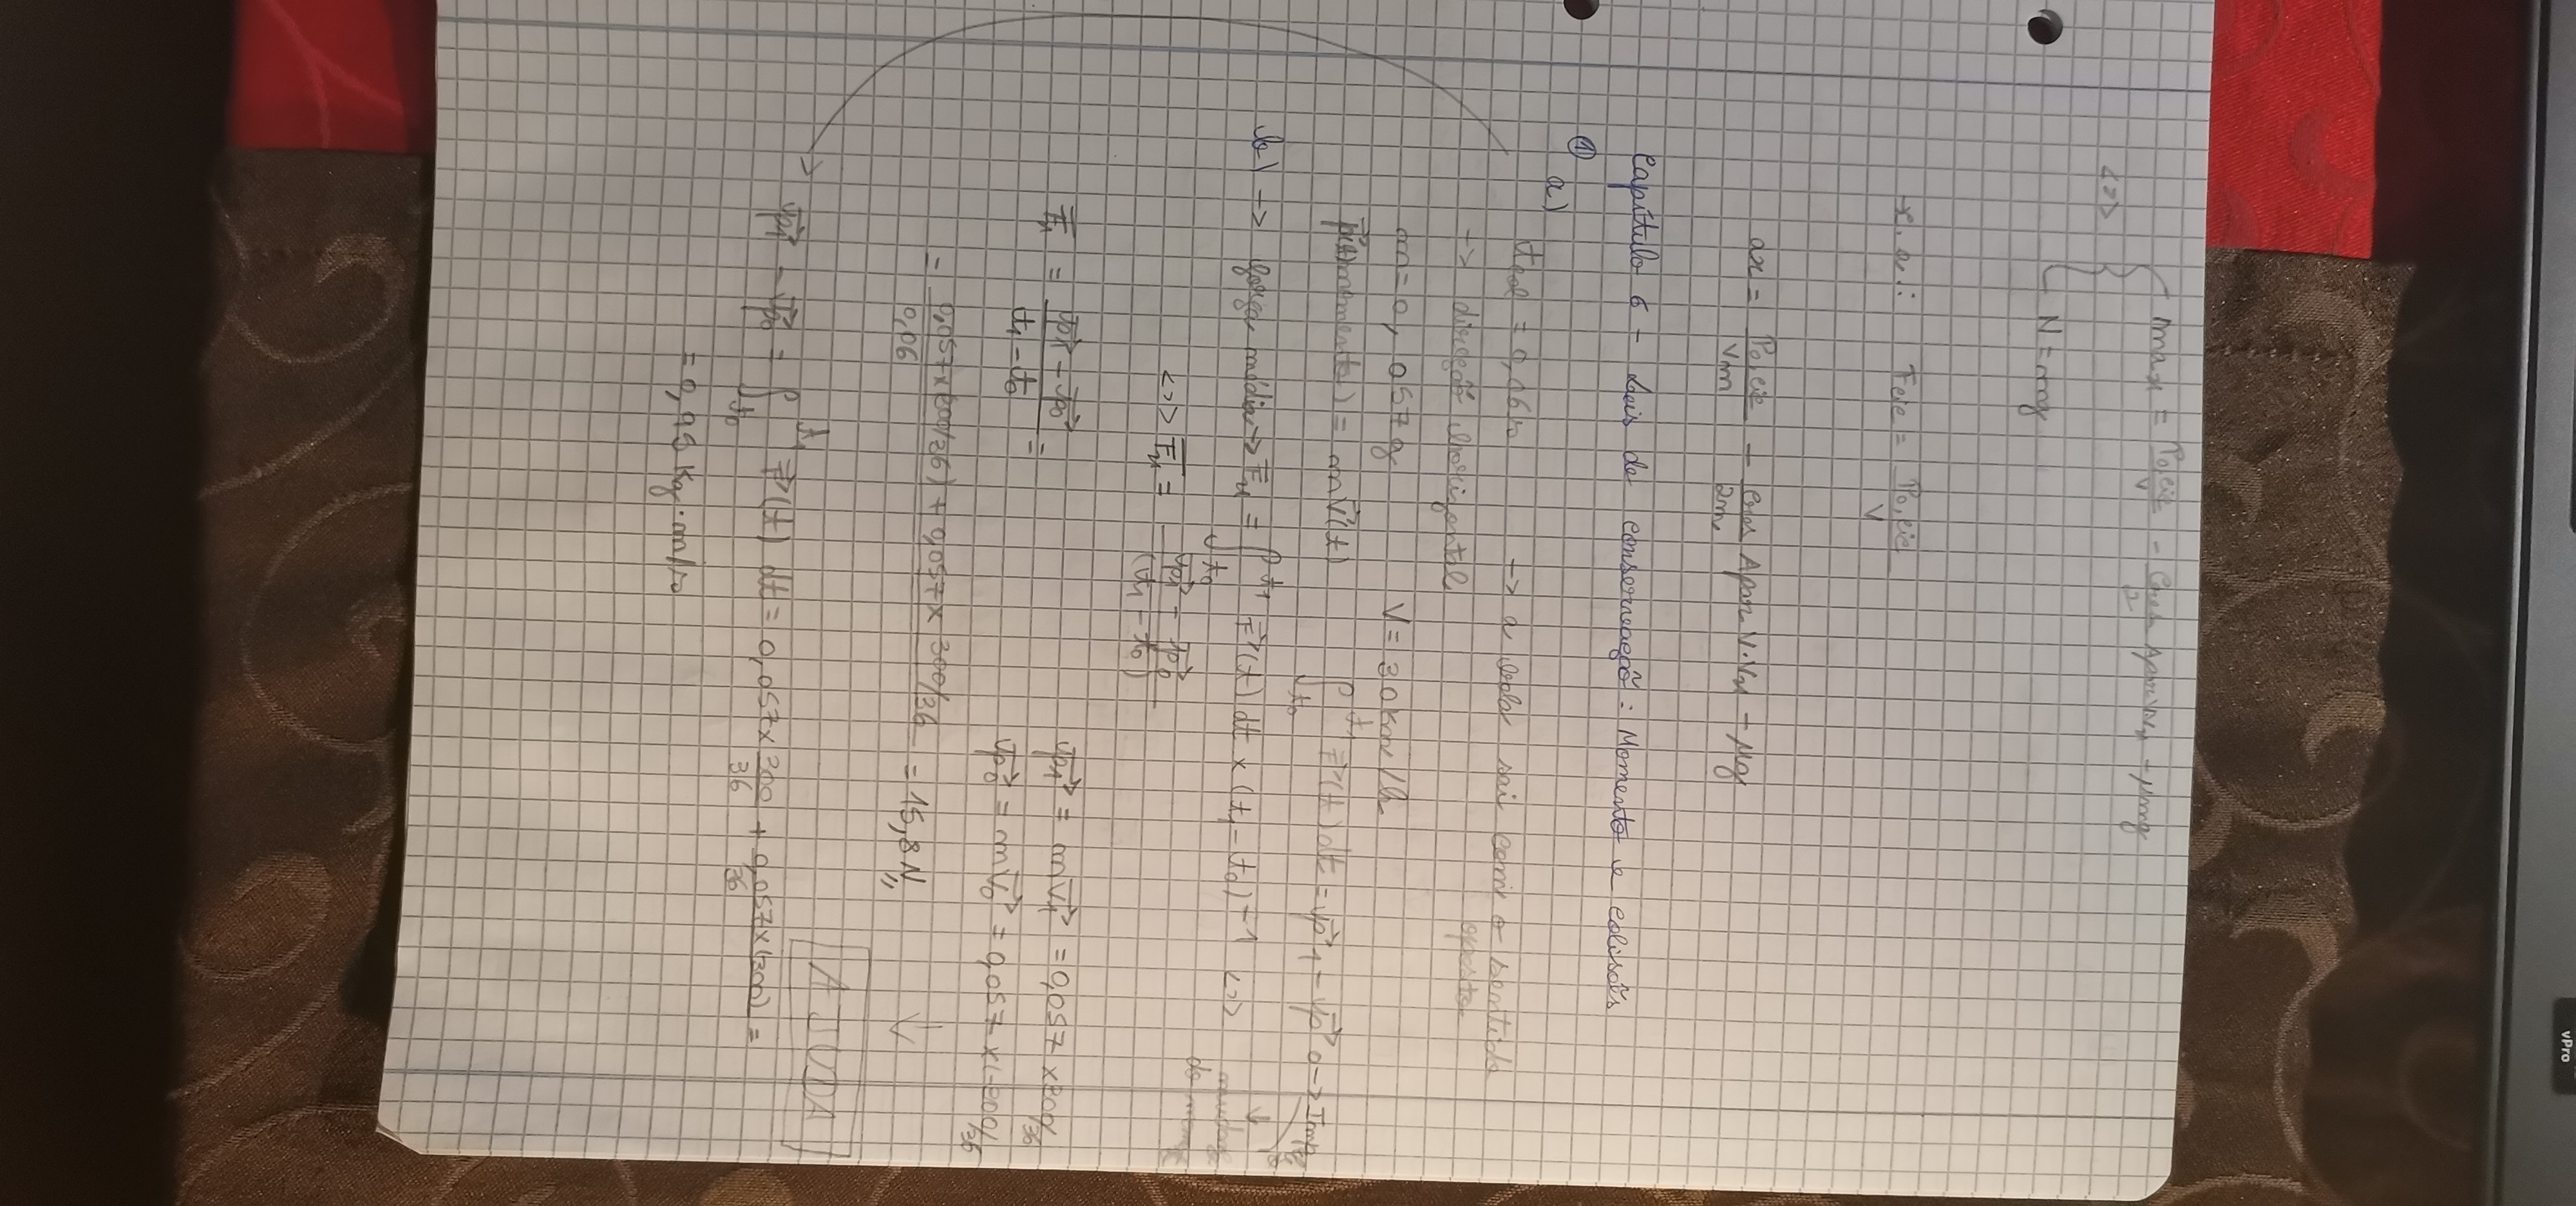 <=> { m ax = P0,eix/v - Cres/2 Aρar V Vx - μmg
N = mg
r.a.: Feix = P0,eix/V
ax = P0,eix/Vm - Cres/2m Aρar V.Vx - μg
Capítulo 6 - Leis de conservação: Momento e colisões
① a) tcol = 0,06s -> a bola sai com o sentido oposto
-> direção horizontal
m = 0,057g V = 30km/h
p⃗(t) = m v⃗(t) ∫t0 t1 F⃗(t) dt = p⃗1 - p⃗0 -> Imp
b) -> força média -> FM = ∫t0 t1 F⃗(t) dt × (t1 - t0)-1 <=>
<=> FM = p⃗1 - p⃗0 / (t1 - t0)
FM = p⃗1 - p⃗0 / t1 - t0 = p⃗1 = m v⃗1 = 0,057 × 300/36
p⃗0 = m v⃗0 = 0,057 × (-300/36
= 0,057 × (300/36) + 0,057 × 300/36 / 0,06 = 15,8 N,,
AJUDA
-> p⃗1 - p⃗0 = ∫t0 t1 F⃗(t) dt = 0,057 × 300/36 + 0,057 × (300)/36 =
= 0,95 Kg.m/s
vPro